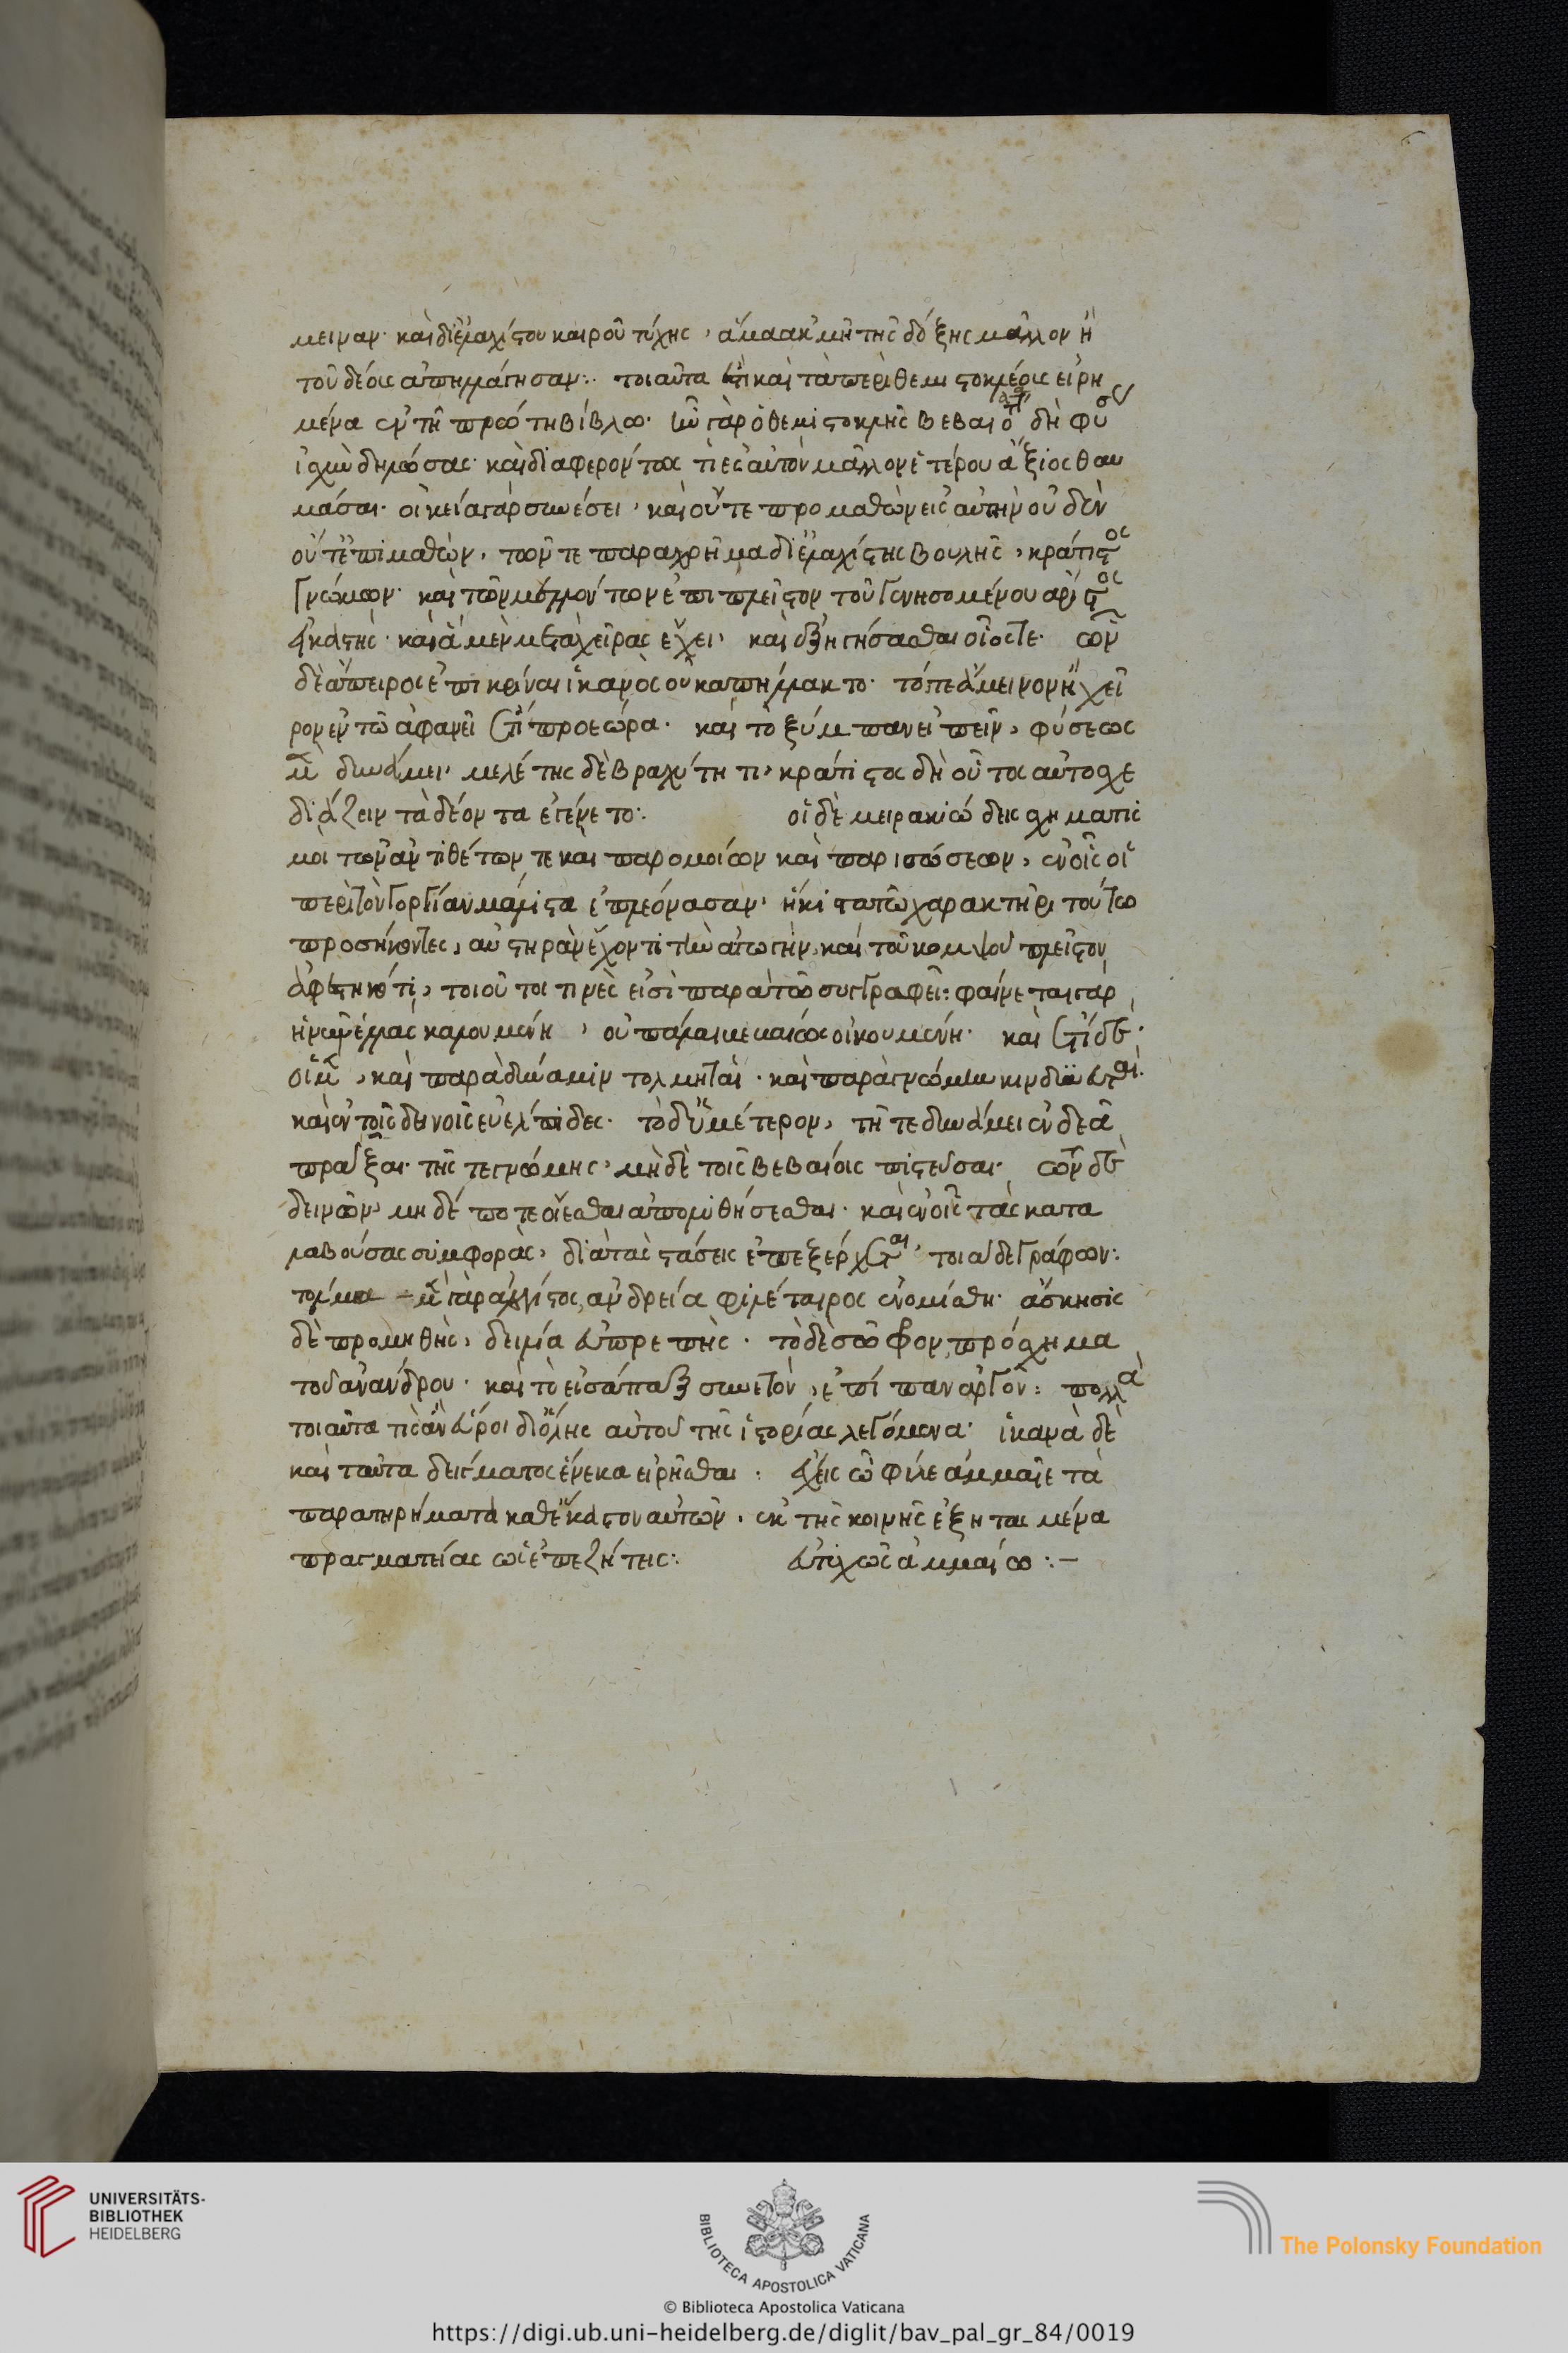 μειναν· καὶ δι' ἐλαχίστου καιροῦ τύχης, ἅμα ἀκμῇ τῆς δόξης μᾶλλον ἢ
τοῦ δέους ἀπηλλάγησαν:. τοιαῦτα ἐστὶ καὶ τὰ περὶ θεμιστοκλέους εἰρη
μένα ἐν τῇ πρώτη βίβλω· ἦν γὰρ ὁ θεμιστοκλῆς βεβαιότατα δὴ φύσεως
ἰσχὺν δηλώσας· καὶ διαφερόντως τι ἐς αὐτὸν μᾶλλον ἑτέρου ἄξιος θαυ
μάσαι· οἰκεία γὰρ συνέσει, καὶ οὔτε προμαθὼν εἰς αὐτὴν οὐδὲν
οὔτ' ἐπιμαθὼν, τῶν τε παραχρῆμα δι' ἐλαχίστης βουλῆς, κράτιστος
γνώμων· καὶ τῶν μελλόντων ἐπιπλεῖστον τοῦ γενησομένου ἄριστος
εἰκαστής· καὶ ἃ μὲν μετὰ χεῖρας ἔχει, καὶ ἐξηγήσασθαι οἷός τε· ὧν
δὲ ἄπειρος ἐπικρῖναι ἱκανῶς οὐκ ἀπήλλακτο· τό τε ἄμεινον ἢ χεῖ
ρον ἐν τῶ ἀφανεῖ ἔτι προεώρα· καὶ τὸ ξύμπαν εἰπεῖν, φύσεως
μὲν δυνάμει, μελέτης δὲ βραχύτητι, κράτιστος δὴ οὗτος αὐτοσχε
διάζειν τὰ δέοντα ἐγένετο:. οἱ δὲ μειρακιώδεις σχηματισ
μοι τῶν ἀντιθέτων τε καὶ παρομοίων καὶ παρισώσεων, ἐν οἷς οἱ
περὶ τὸν γοργίαν μάλιστα ἐπλεόνασαν, ἥκιστα τῶ χαρακτῆρι τούτω
προσήκοντες, αὐστηρὰν ἔχοντι τὴν ἀγωγὴν, καὶ τοῦ κομψοῦ πλεῖστον
ἀφεστηκότι, τοιοῦτοί τινές εἰσὶ παρὰ τῶ συγγραφεῖ: φαίνεται γὰρ
ἡ νῦν ἑλλὰς καλουμένη, οὐ πάλαι βεβαίως οἰκουμένη· καὶ ἔτι δὲ·
οἱ μὲν, καὶ παρὰ δύναμιν τολμηταὶ· καὶ παρὰ γνώμην κινδυνευταὶ·
καὶ ἐν τοῖς δεινοῖς εὐέλπιδες· τὸ δ' ὑμέτερον, τῆ τε δυνάμει ἐνδεᾶ
πρᾶξαι· τῆς τε γνώμης, μὴ δὲ τοῖς βεβαίοις πιστεῦσαι· τῶν δὲ
δεινῶν, μηδέποτε οἴεσθαι ἀπολυθήσεσθαι· καὶ ἐν οἷς τὰς κατα
λαβούσας συμφορὰς, διὰ τὰς στάσεις ἐπεξέρχεται, τοιάδε γράφων:
τόλμα μὲν γὰρ ἀλόγιστος, ἀνδρεία φιλέταιρος ἐνομίσθη· ἄσκησις
δὲ προμηθὴς, δειλία εὐπρεπής· τὸ δὲ σῶφρον, πρόσχημα
τοῦ ἀνάνδρου· καὶ τὸ εἰσάπαξ συνετὸν, ἐπί παν ἀργὸν: πολλὰ
τοιαῦτα τὶς ἂν εὕροι δι' ὅλης αὐτοῦ τῆς ἱστορίας λεγόμενα· ἱκανὰ δὲ
καὶ ταῦτα δείγματος ἕνεκα εἰρῆσθαι: ἔχεις ὦ φίλε ἀμμαῖε τὰ
παρατηρήματα καθ' ἕκαστον αὐτῶν, ἐκ τῆς κοινῆς ἐξητασμένα
πραγματείας ὡς ἐπεζήτεις:. εὐτυχῶς ἀμμαίω:.—
UNIVERSITÄTS-
BIBLIOTHEK
HEIDELBERG
BIBLIOTECA APOSTOLICA VATICANA
The Polonsky Foundation
© Biblioteca Apostolica Vaticana
https://digi.ub.uni-heidelberg.de/diglit/bav_pal_gr_84/0019